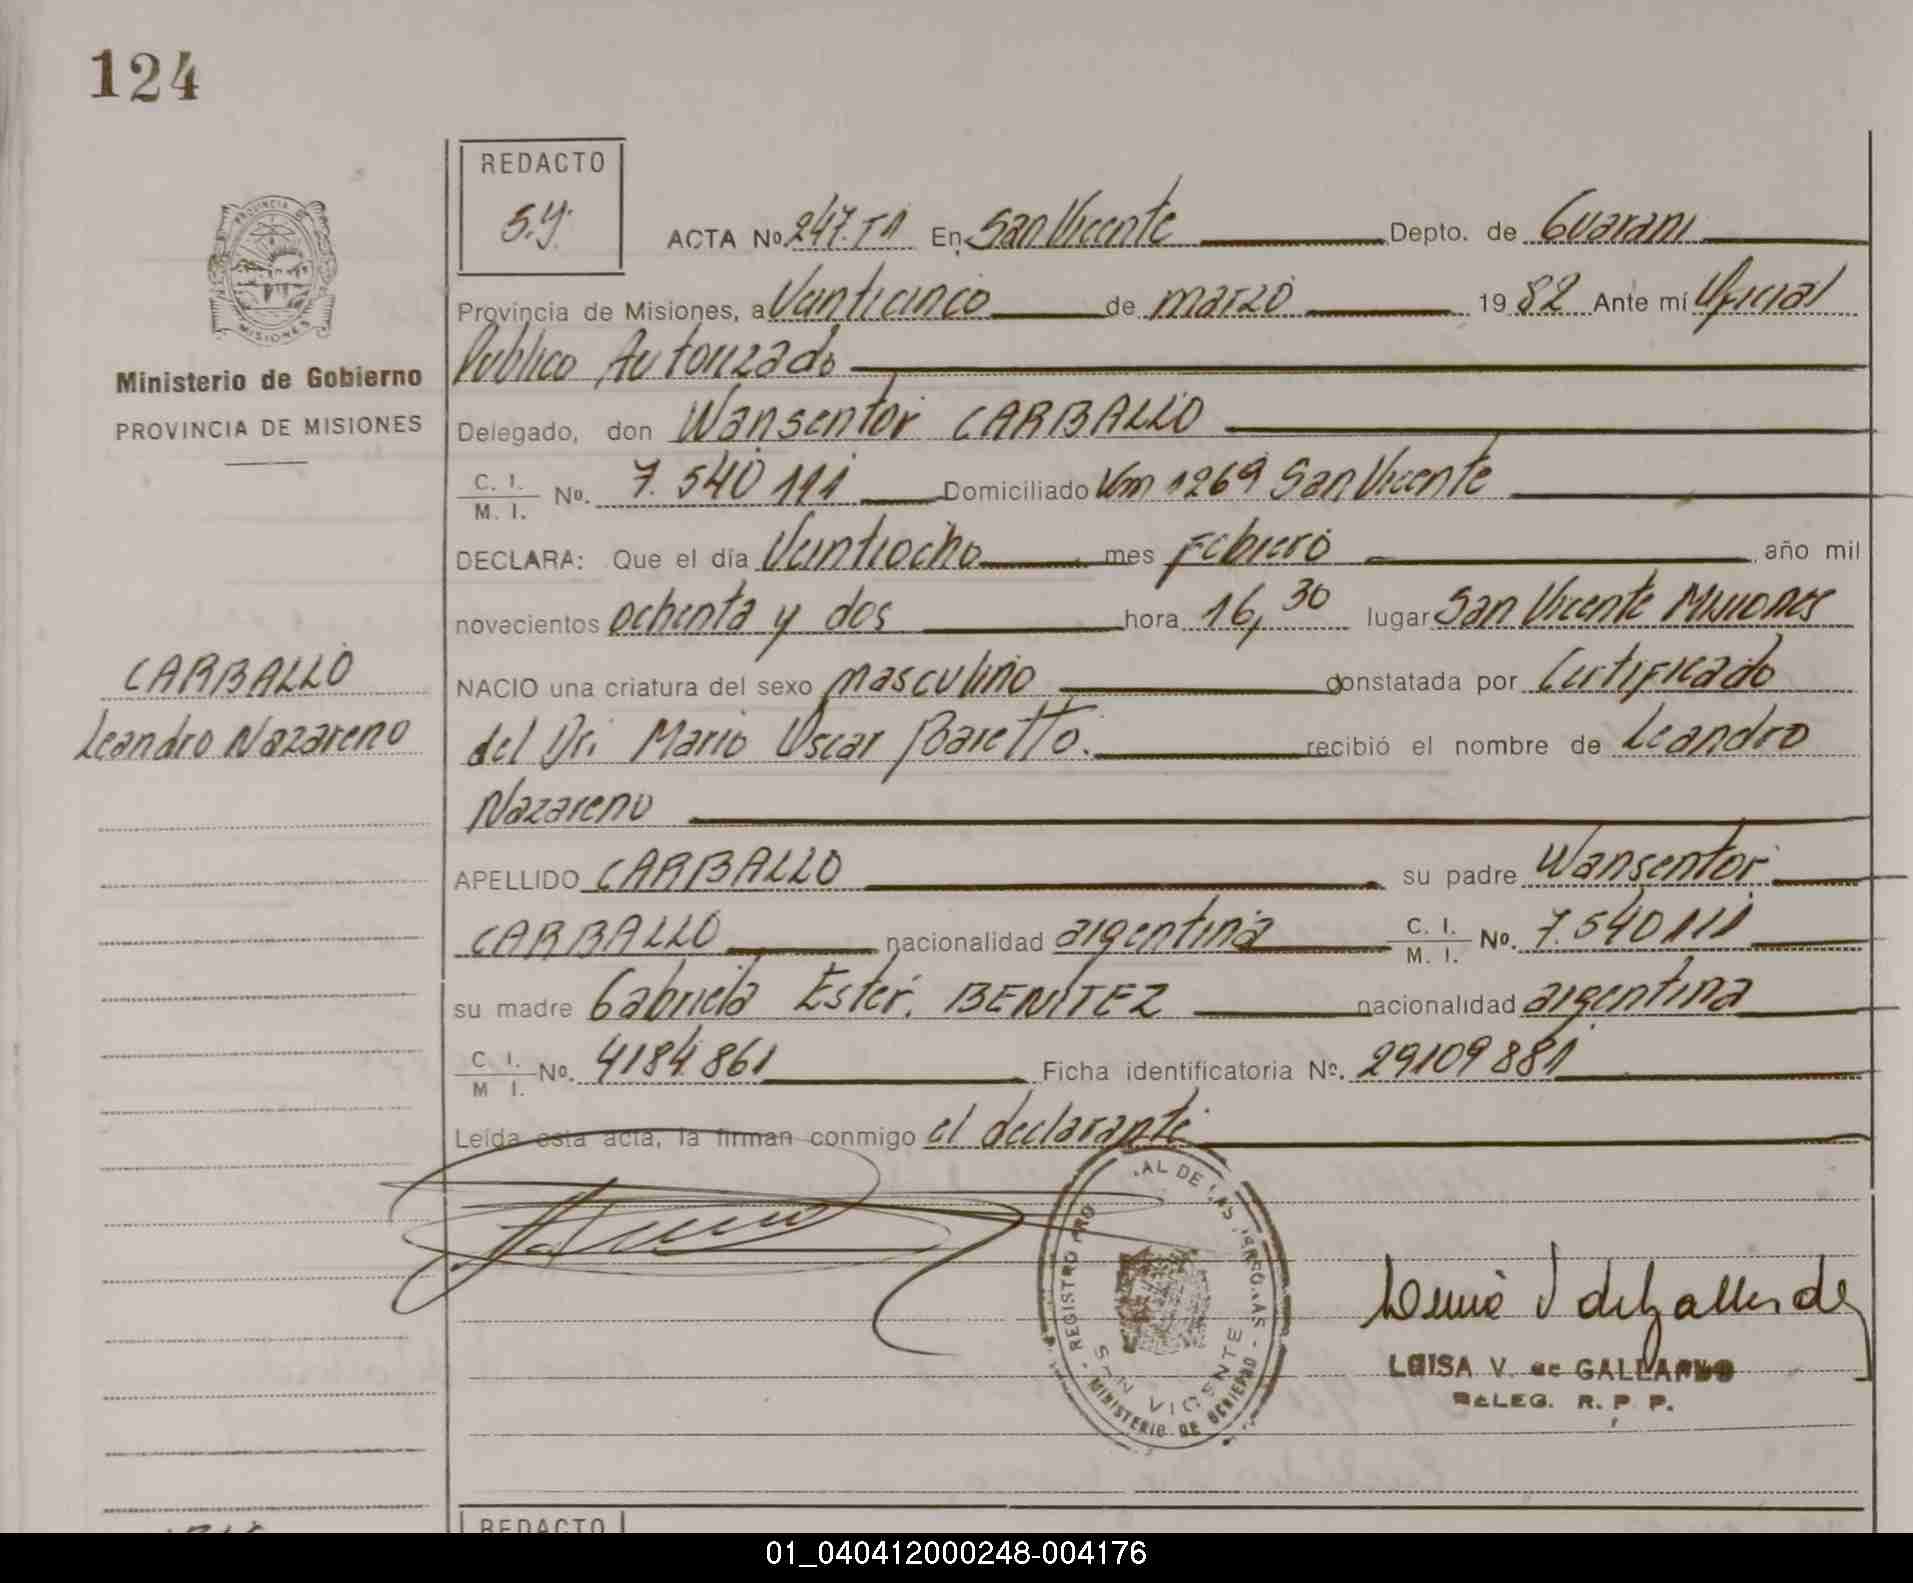 124
REDACTO
S.y.
PROVINCIA DE
MISIONES
Ministerio de Gobierno
PROVINCIA DE MISIONES
ACTA No. 247.T1 En San Vicente Depto. de Guarani
Provincia de Misiones, a Veinticinco de marzo 1982 Ante mí Oficial
Publico Autorizado
Delegado, don Wansentor CARBALLO
C. I. / M. I. No. 7.540 111 Domiciliado Km 1269 San Vicente
DECLARA: Que el día Veintiocho mes Febrero año mil
novecientos ochenta y dos hora 16,30 lugar San Vicente Misiones
NACIO una criatura del sexo masculino constatada por Certificado
del Dr. Mario Oscar Baretto. recibió el nombre de Leandro
Nazareno
CARBALLO
Leandro Nazareno
APELLIDO CARBALLO su padre Wansentor
CARBALLO nacionalidad argentina C. I. / M. I. No. 7.540111
su madre Gabriela Ester. BENITEZ nacionalidad argentina
C. I. / M I. No. 4184861 Ficha identificatoria Nº. 29109881
Leída esta acta, la firman conmigo el declarante
REGISTRO PRO AL DE LAS
SAN VICENTE
MINISTERIO DE
LUISA V. de GALLARDO
DELEG. R. P. P.
REDACTO
01_040412000248-004176